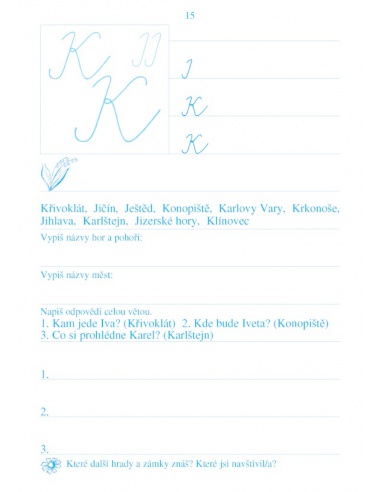 15
K J J
K
J
K
K
Křivoklát, Jičín, Ještěd, Konopiště, Karlovy Vary, Krkonoše,
Jihlava, Karlštejn, Jizerské hory, Klínovec
Vypiš názvy hor a pohoří:
Vypiš názvy měst:
Napiš odpovědi celou větou.
1. Kam jede Iva? (Křivoklát) 2. Kde bude Iveta? (Konopiště)
3. Co si prohlédne Karel? (Karlštejn)
1.
2.
3.
Které další hrady a zámky znáš? Které jsi navštívil/a?